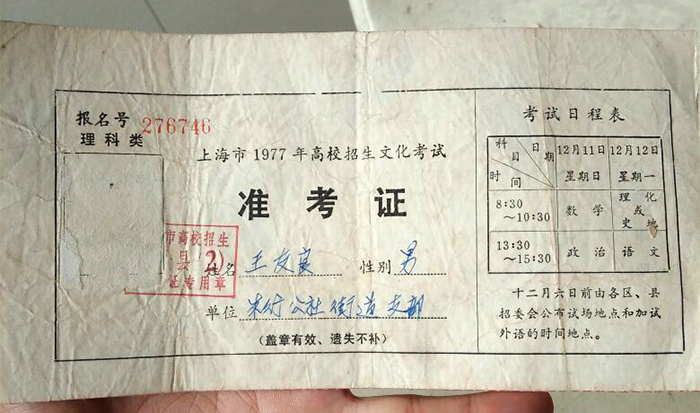 报名号 276746
理科类
上海市1977年高校招生文化考试
准考证
市高校招生
县 2)
证专用章
姓名 王友宾 性别 男
单位 朱行公社街道支部
(盖章有效、遗失不补)
考试日程表
科目 日期 时间 12月11日 星期日 12月12日 星期一
8:30~10:30 数学 理化或史地
13:30~15:30 政治 语文
十二月六日前由各区、县
招委会公布试场地点和加试
外语的时间地点。